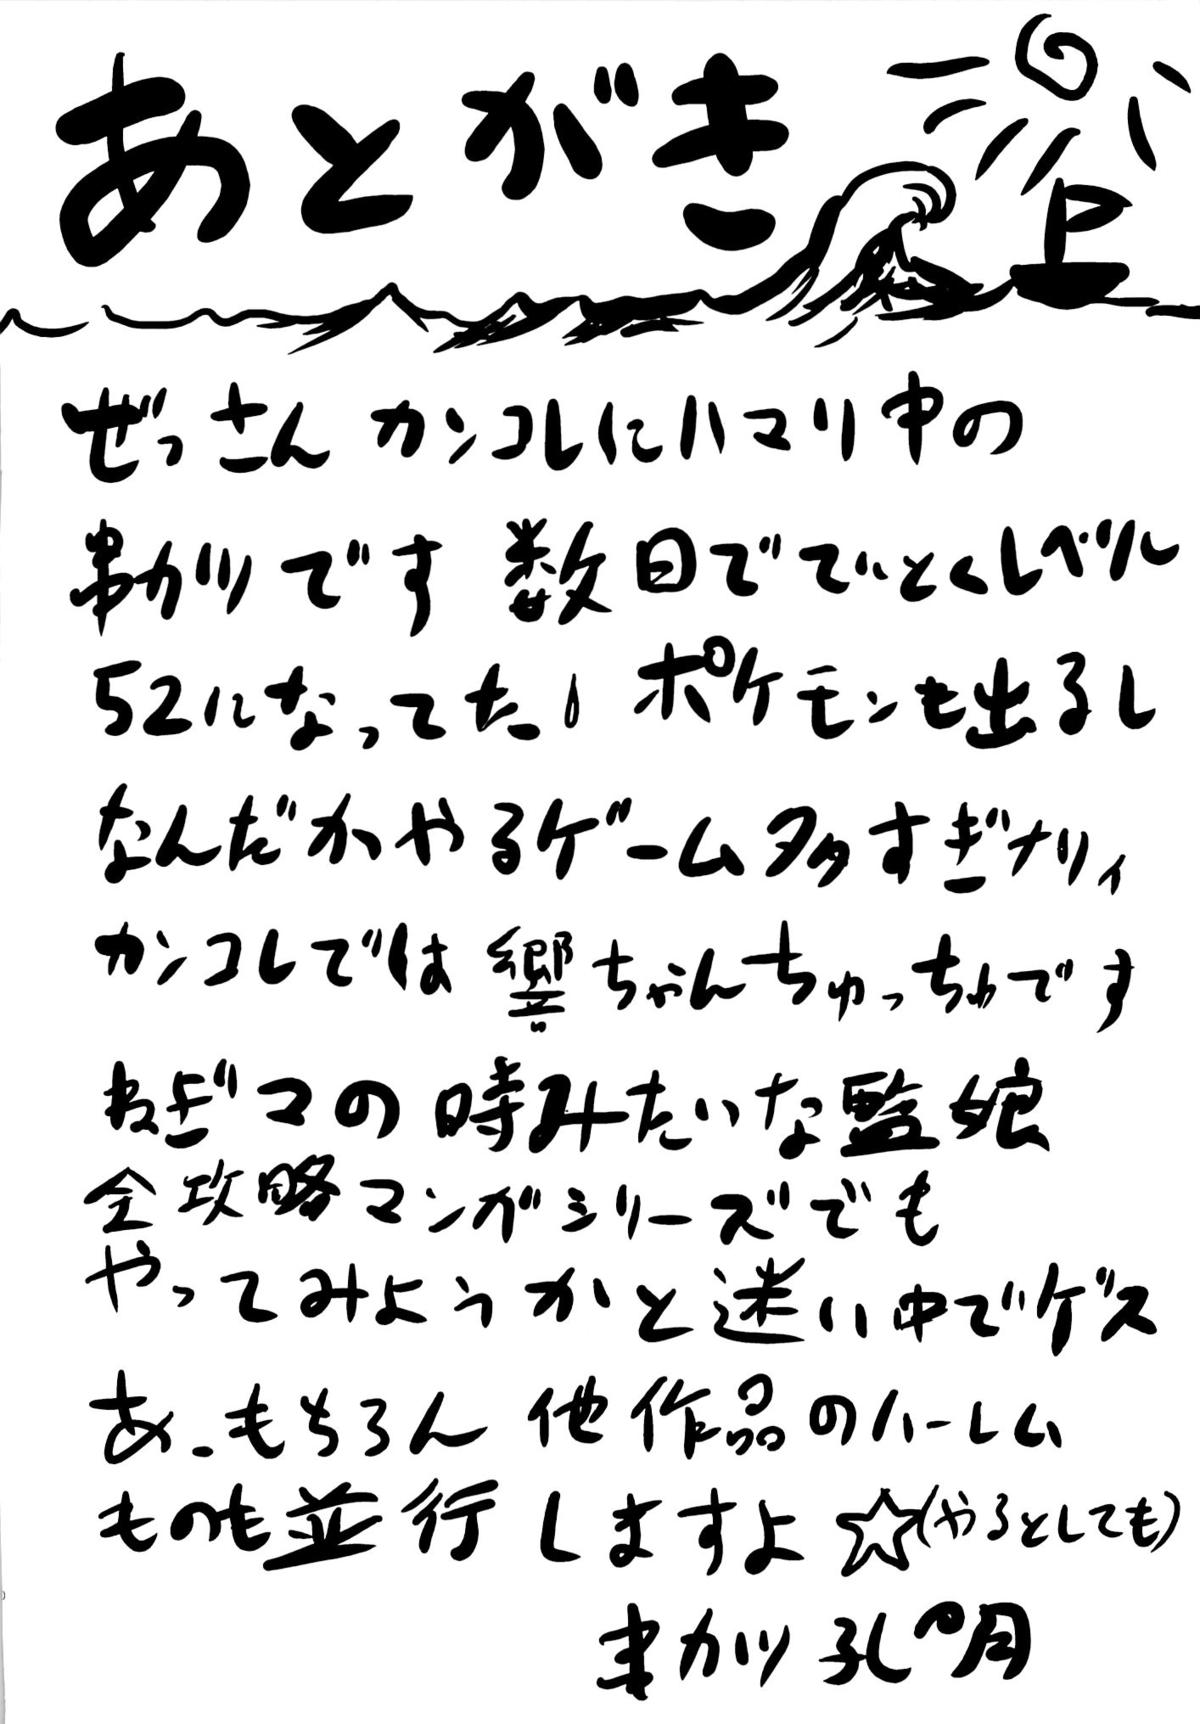 あとがき
ぜっさんカンコレにハマり中の
串カツです 数日でていとくレベル
52になってた! ポケモンも出るし
なんだかやるゲーム多すぎナリィ
カンコレでは響ちゃんちゅっちゅです
ねぎマの時みたいな監娘
全攻略マンガシリーズでも
やってみようかと迷い中でゲス
あ、もちろん他作品のハーレム
ものも並行しますよ☆(やるとしても)
串カツ孔明